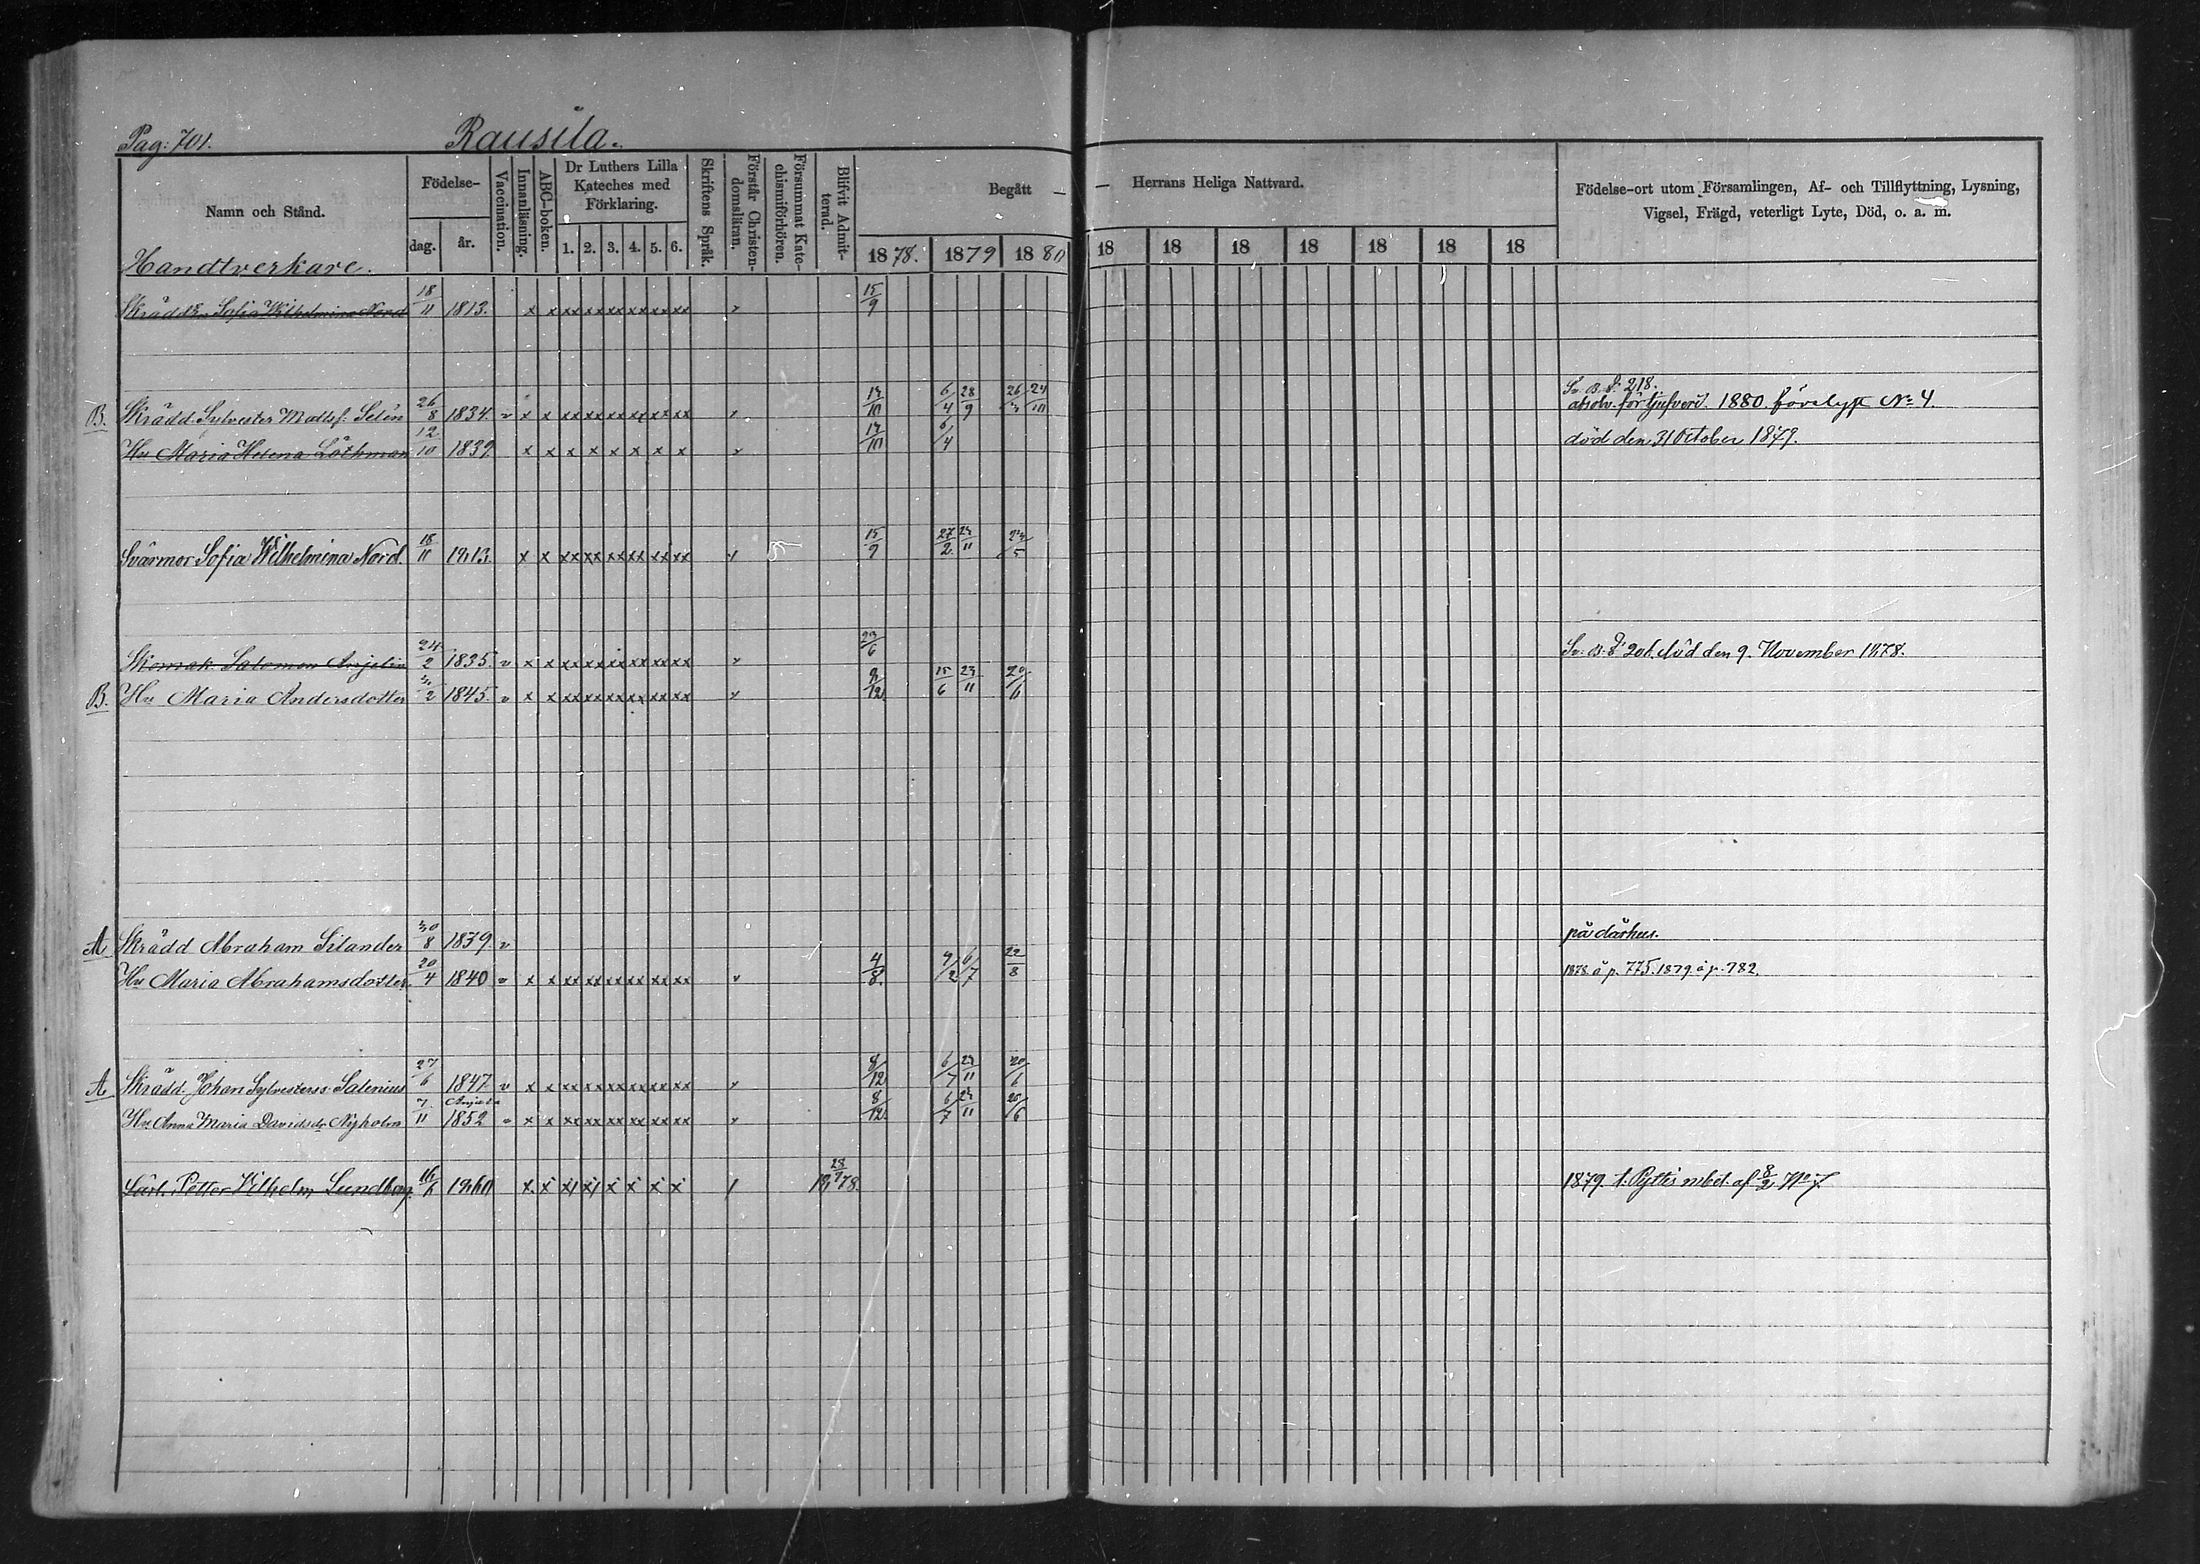 Pag: 701. Rausila.
Namn och Stånd.
Födelse-
dag. år.
Vaccination.
Innanläsning.
ABC-boken.
Dr Luthers Lilla
Kateches med
Förklaring.
1. 2. 3. 4. 5. 6.
Skriftens Språk.
Förstår Christen-
domsläran.
Försummat Kate-
chismiförhören.
Blifvit Admit-
terad.
Begått — — Herrans Heliga Nattvard.
1878. 1879 1880 18 18 18 18 18 18 18
Födelse-ort utom Församlingen, Af- och Tillflyttning, Lysning,
Vigsel, Frägd, veterligt Lyte, Död, o. a. m.
Handtverkare.
Skrädd Sofia Wilhelmina Nord 18/11 1813. x x xx xx xx xx xx xx 15/9
Sv. B. S. 218.
B. Skrädd. Sylvester Mattsf. Selén 26/8 1834. v x x xx xx xx xx xx xx 13/10 6/4 28/9 26/3 24/10 absolv. för tjufveri. 1880. förelyst No 4.
Hu Maria Helena Löthman 12/10 1839 x x x x x x x x 13/10 6/4 död den 31 October 1879.
Svärmor Sofia Wilhelmina Nord. 18/11 1813. x x xx xx xx xx xx xx 15/9 27/2 23/11 23/5
Skomak. Salomon Anjelin 24/2 1835. v x x xx xx xx xx xx xx 23/6 Sv. B. S. 201. död den 9. November 1878.
B. Hu Maria Andersdotter 3/2 1845. v x x xx xx xx xx xx xx 8/12 15/6 23/11 20/6
A Skrädd Abraham Silander 30/8 1839 v på dårhus.
Hu Maria Abrahamsdotter 20/4 1840 v x x xx xx xx xx xx xx 4/8. 9/2 6/7 22/8 1878. å p. 775. 1879 å p. 782.
A Skrädd. Johan Sylvesterss. Salenius 27/6 1847 v x x xx xx xx xx xx xx 8/12 6/7 23/11 20/6
Anjala
Hu Anna Maria Davidsdr Nyholm 7/11 1852 v x x xx xx xx xx xx xx 8/12 6/7 23/11 20/6
Lärl. Petter Vilhelm Lundberg 16/6 1860 x x x x x x x x 1878. 1879. t. Pyttis mbet. af 8/2 No 7